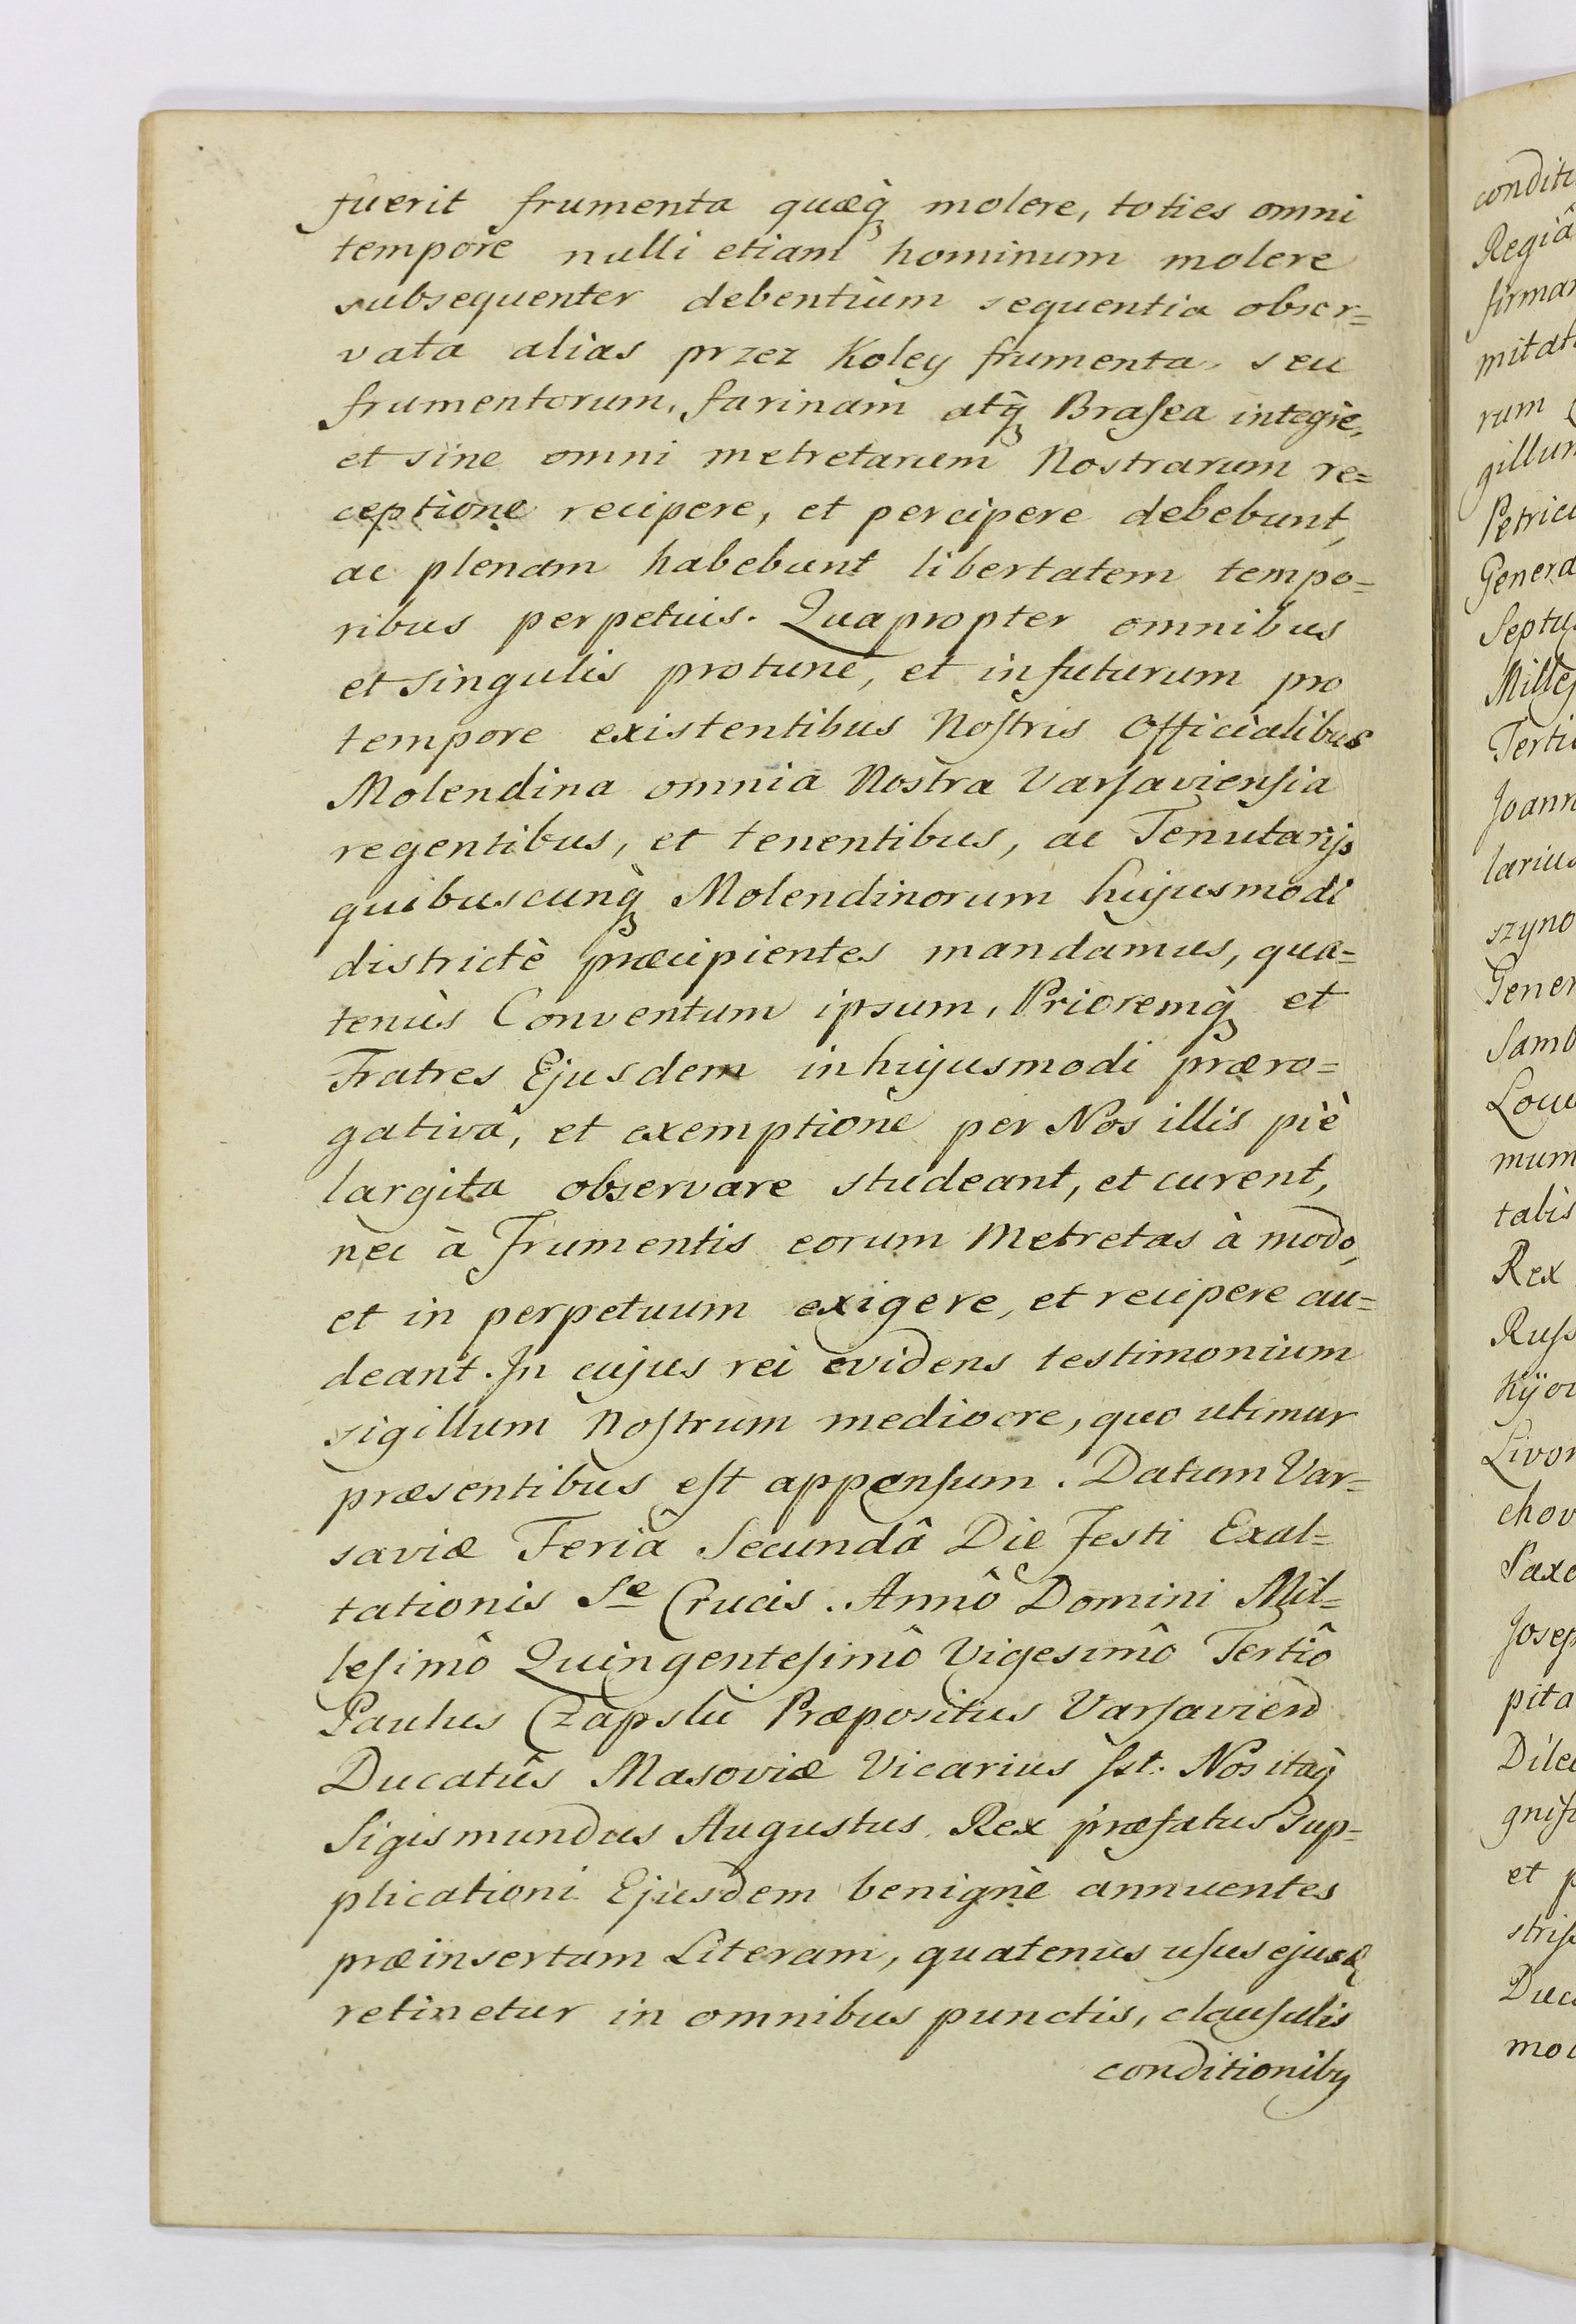 fuerit frumenta quæq̀ molere, toties omni
tempore nulli etiam hominum molere
subsequenter debentium sequentia obser=
vata alias przez Koley frumenta, seu
frumentorum, farinam atq̀ Braſea integre,
et sine omni metretarum Nostrarum re=
ceptione recipere, et percipere debebunt,
ac plenam habebunt libertatem tempo=
ribus perpetuis. Quapropter omnibus
et singulis protunc, et infuturum pro
tempore existentibus Noſtris Officialibus
Molendina omnia Nostra Varſavienſia
regentibus, et tenentibus, ac Tenutarijs
quibuscunq̀ Molendinorum hujusmodi
districtè præcipientes mandamus, qua=
tenùs Conventum ipsum, Prioremq̀ et
Fratres Ejusdem inhujusmodi præro=
gativâ, et exemptione per Nos illis piè
largita observare studeant, et curent,
nec à Frumentis eorum Metretas à modo,
et in perpetuum exigere, et recipere au=
deant. In cujus rei evidens testimonium
sigillum Noſtrum mediocre, quo utimur
præsentibus eſt appenſum. Datum Var=
saviæ Feria Secundâ Die Festi Exal=
tationis Se Crucis. Annô Domini Mil=
leſimô Quingenteſimô Vigesimô Tertiô
Paulus Czapski Præpositus Varſavien
Ducatûs Masoviæ Vicarius ſst. Nos itaq̀
Sigismundus Augustus Rex præfatus Sup=
plicationi Ejusdem benignè annuentes
præinsertam Literam, quatenus uſus ejusd
retinetur in omnibus punctis, clauſulis
conditioniby
conditi
Regiâ
firmar
mitat
rum
gillum
Petrico
Genera
Septu
Milleſ
Terti
Joann
larius
szyno
Gener
Samb
mum
talis
Rex
Ruſs
Kÿov
Livon
chov
Saxo
Josep
pita
Dilec
gniſi
et p
striſs
Duc
mod